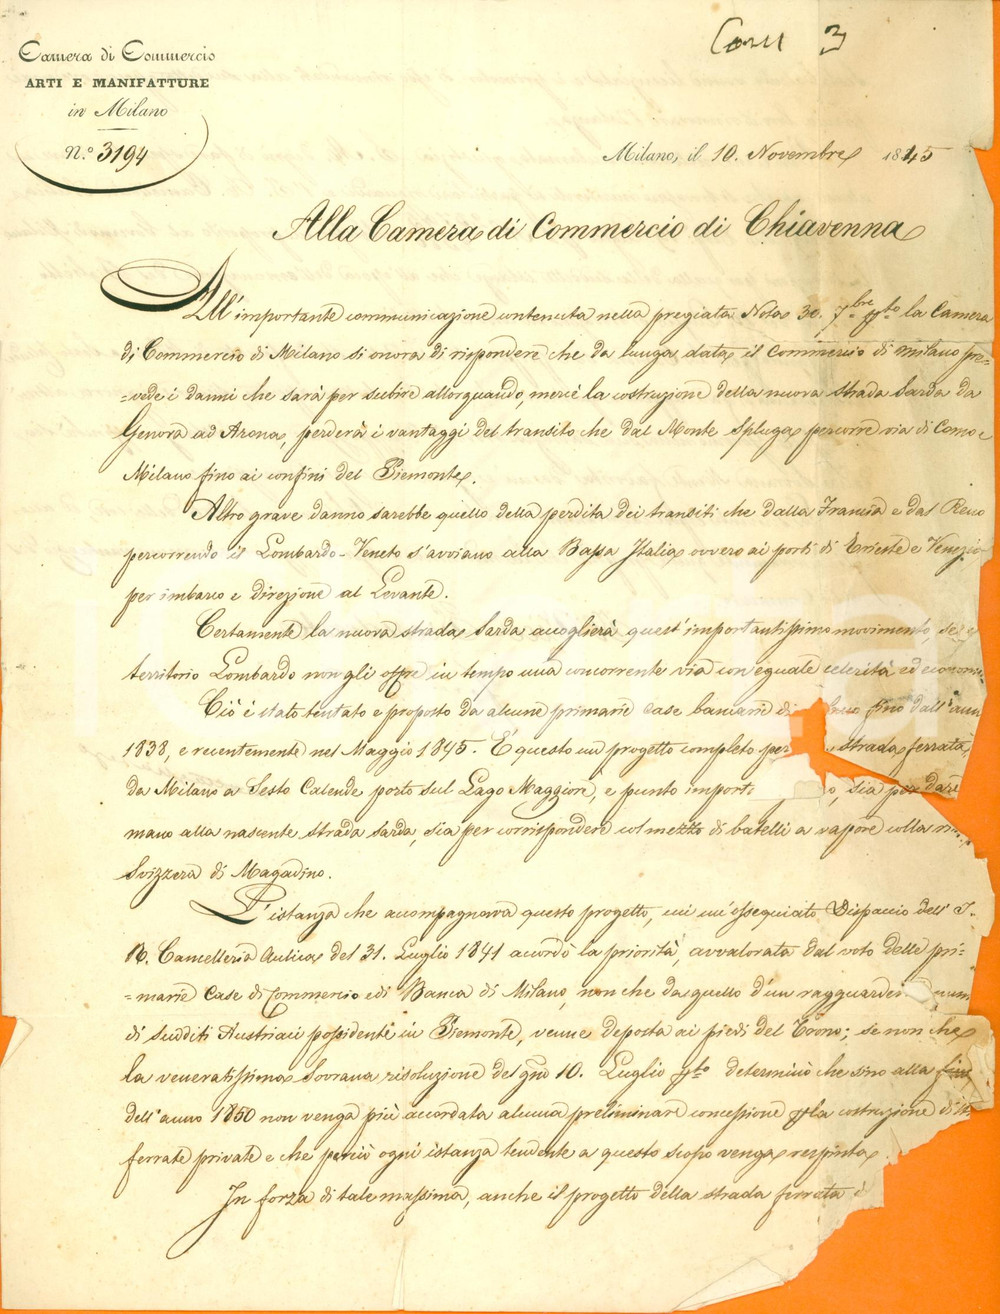 Com 3
Camera di Commercio
ARTI E MANIFATTURE
in Milano
N.° 3194
Milano, il 10. Novembre 1845
Alla Camera di Commercio di Chiavenna
All'importante communicazione contenuta nella pregiata Nota 30. 7.bre p.to la Camera
di Commercio di Milano si onora di rispondere che da lunga data il Commercio di Milano pre-
=vede i danni che sarà per subire allorquando, mercè la costruzione della nuova strada Sarda da
Genova ad Arona, perderà i vantaggi del transito che dal Monte Spluga percorre via di Como e
Milano fino ai confini del Piemonte.
Altro grave danno sarebbe quello della perdita dei transiti che dalla Francia e dal Reno
percorrendo il Lombardo-Veneto s'avviano alla Bassa Italia ovvero ai porti di Trieste e Venezia
per imbarco e direzione al Levante.
Certamente la nuova strada Sarda accoglierà quest'importantissimo movimento, se il
territorio Lombardo non gli offre in tempo una concorrente via con eguale celerità ed econom
Ciò è stato tentato e proposto da alcune primarie case bancarie di fino dall'ann
1838, e recentemente nel Maggio 1845. È questo un progetto completo per strada ferrata
da Milano a Sesto Calende porto sul Lago Maggiore, e punto import o, sia per dare
mano alla nascente strada sarda, sia per corrispondere col mezzo di batelli a vapore colla
Svizzera di Magadino.
L'istanza che accompagnava questo progetto, cui un'ossequiato Dispaccio dell'I.
R. Cancelleria Aulica del 31. Luglio 1841 accordò la priorità, avvalorata dal voto delle pri-
=marie Case di Commercio e di Banca di Milano, non che da quello d'un ragguarde num
di sudditi Austriaci possidenti in Piemonte, venne deposta ai piedi del Trono; se non che
la veneratissima Sovrana risoluzione del gno 10. Luglio p.to determinò che sino alla fine
dell'anno 1850 non venga più accordata alcuna preliminare concessione p la costruzione di
ferrate private e che perciò ogni istanza tendente a questo scopo venga respinta.
In forza di tale massima, anche il progetto della strada ferrata d